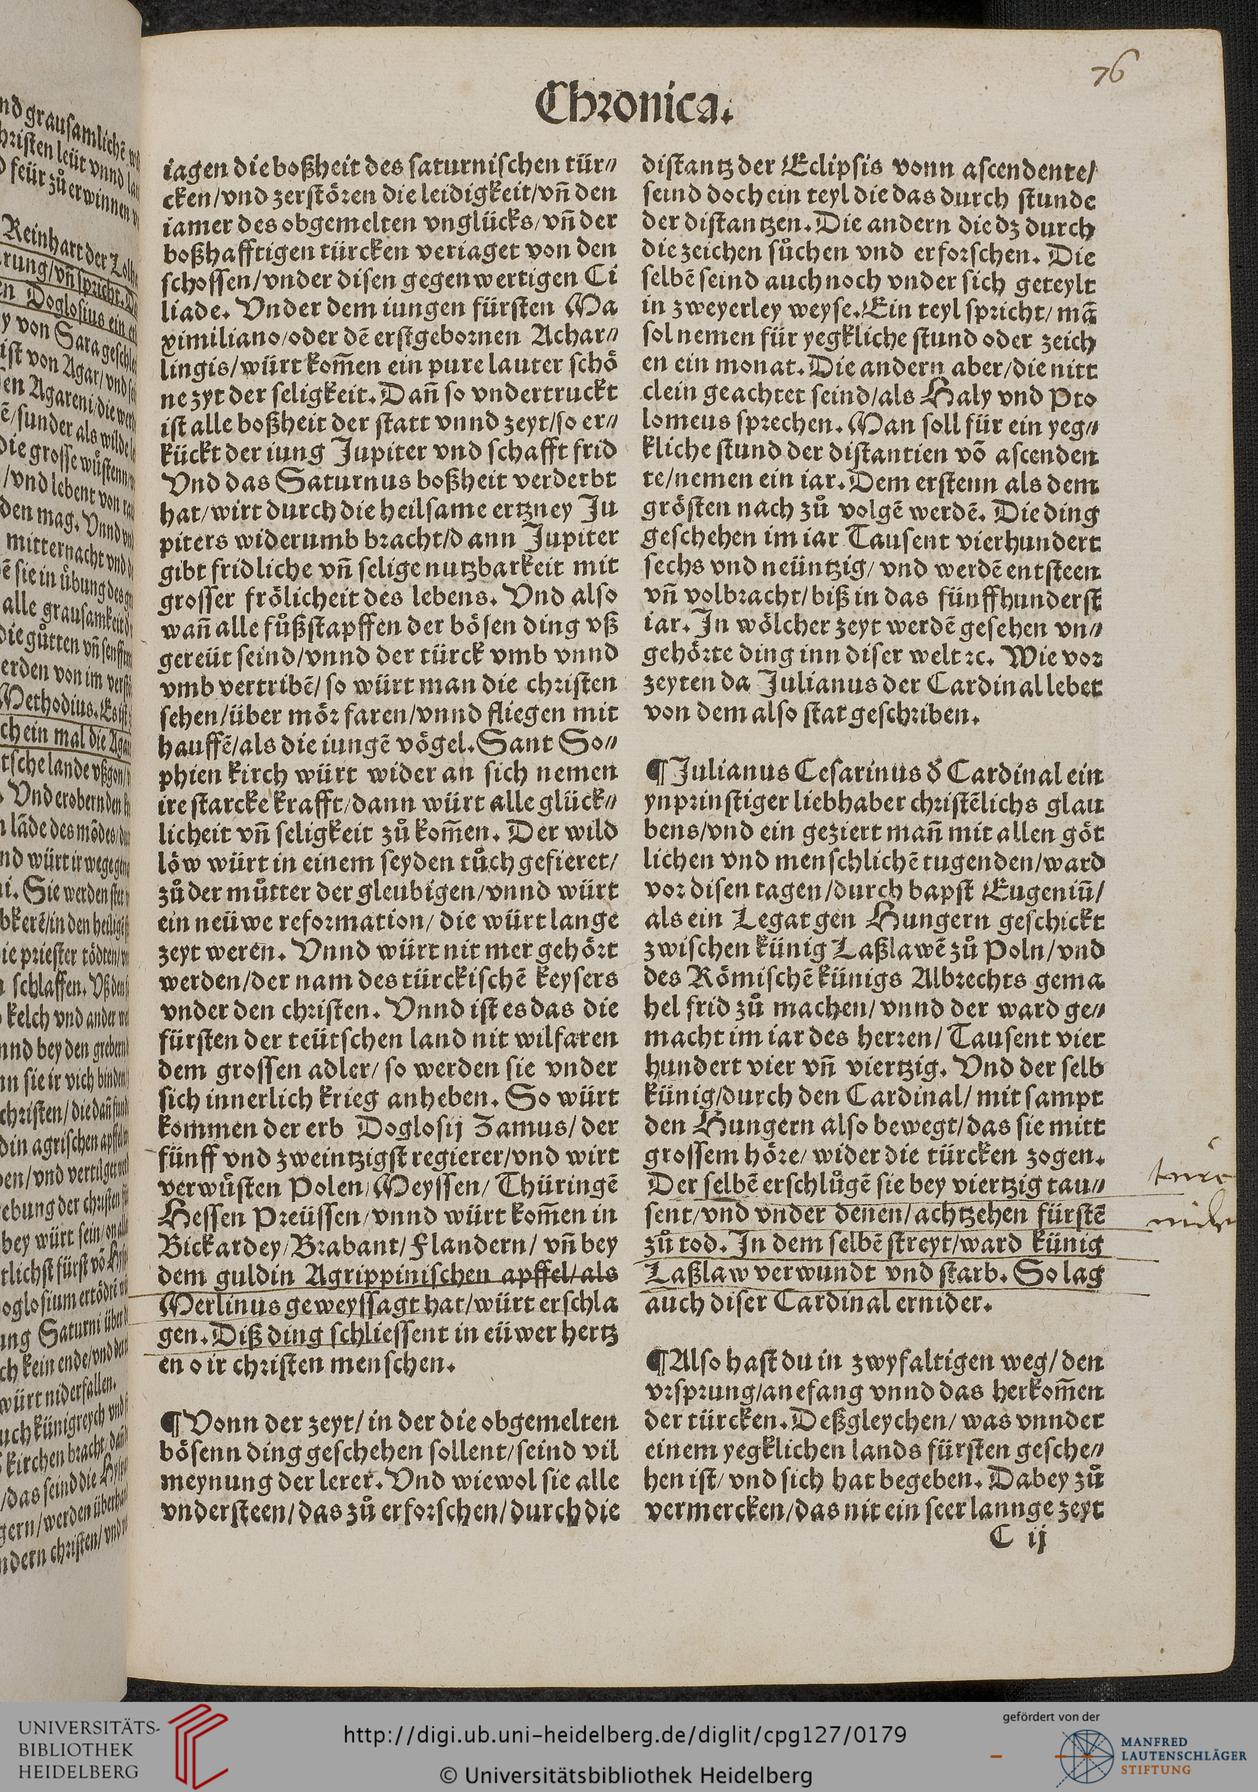 76
Chronica.
iagen die boßheit des saturnischen tür⸗
cken/vnd zerstören die leidigkeit/vñ den
iamer des obgemelten vnglücks/vñ der
boßhafftigen türcken veriaget von den
schossen/vnder disen gegenwertigen Ci
liade. Vnder dem iungen fürsten Ma
ximiliano/oder dẽ erstgebornen Achar⸗
lingis/würt kom̃en ein pure lauter schö
ne zyt der seligkeit. Dañ so vndertruckt
ist alle boßheit der statt vnnd zeyt/so er⸗
kückt der iung Jupiter vnd schafft frid
Vnd das Saturnus boßheit verderbt
hat/wirt durch die heilsame ertzney Ju
piters widerumb bracht/dann Jupiter
gibt fridliche vñ selige nutzbarkeit mit
grosser frölicheit des lebens. Vnd also
wañ alle fůßstapffen der bösen ding vß
gereüt seind/vnnd der türck vmb vnnd
vmb vertribẽ/so würt man die christen
sehen/über mör faren/vnnd fliegen mit
hauffẽ/als die iungẽ vögel. Sant So⸗
phien kirch würt wider an sich nemen
ire starcke krafft/dann würt alle glück⸗
licheit vñ seligkeit zů kom̃en. Der wild
löw würt in einem seyden tůch gefieret/
zů der můtter der gleubigen/vnnd würt
ein neüwe reformation/die würt lange
zeyt weren. Vnnd würt nit mer gehört
werden/der nam des türckischẽ keysers
vnder den christen. Vnnd ist es das die
fürsten der teütschen land nit wilfaren
dem grossen adler/so werden sie vnder
sich innerlich krieg anheben. So würt
kommen der erb Doglosij Zamus/der
fünff vnd zweintzigst regierer/vnd wirt
verwüsten Polen/Meyssen/Thüringẽ
Hessen Preüssen/vnnd würt kom̃en in
Bickardey/Brabant/Flandern/vñ bey
dem guldin Agrippinischen apffel/als
Merlinus geweyssagt hat/würt erschla
gen. Diß ding schliessent in eüwer hertz
en o ir christen menschen.
¶Vonn der zeyt/in der die obgemelten
bösenn ding geschehen sollent/seind vil
meynung der lerer. Vnd wiewol sie alle
vndersteen/das zů erforschen/durch die
distantz der Eclipsis vonn ascendente/
seind doch ein teyl die das durch stunde
der distantzen. Die andern die dz durch
die zeichen sůchen vnd erforschen. Die
selbẽ seind auch noch vnder sich geteylt
in zweyerley weyse. Ein teyl spricht/mã
sol nemen für yegkliche stund oder zeich
en ein monat. Die andern aber/die nitt
clein geachtet seind/als Haly vnd Pto
lomeus sprechen. Man soll für ein yeg⸗
kliche stund der distantien võ ascenden
te/nemen ein iar. Dem erstenn als dem
grösten nach zů volgẽ werdẽ. Die ding
geschehen im iar Tausent vierhundert
sechs vnd neüntzig/vnd werdẽ entsteen
vñ volbracht/biß in das fünffhunderst
iar. In wölcher zeyt werdẽ gesehen vn⸗
gehörte ding inn diser welt ꝛc. Wie vor
zeyten da Julianus der Cardinal lebet
von dem also stat geschriben.
¶Julianus Cesarinus ð Cardinal ein
ynprinstiger liebhaber christẽlichs glau
bens/vnd ein geziert mañ mit allen göt
lichen vnd menschlichẽ tugenden/ward
vor disen tagen/durch bapst Eugeniũ/
als ein Legat gen Hungern geschickt
zwischen künig Laßlawẽ zů Poln/vnd
des Römischẽ künigs Albrechts gema
hel frid zů machen/vnnd der ward ge⸗
macht im iar des herren/Tausent vier
hundert vier vñ viertzig. Vnd der selb
künig/durch den Cardinal/mit sampt
den Hungern also bewegt/das sie mitt
grossem höre/wider die türcken zogen.
Der selbẽ erschlůgẽ sie bey viertzig tau⸗
sent/vnd vnder denen/achtzehen fürstẽ
zů tod. In dem selbẽ streyt/ward künig
Laßlaw verwundt vnd starb. So lag
auch diser Cardinal ernider.
¶Also hast du in zwyfaltigen weg/den
vrsprung/anefang vnnd das herkom̃en
der türcken. Deßgleychen/was vnnder
einem yegklichen lands fürsten gesche⸗
hen ist/vnd sich hat begeben. Dabey zů
vermercken/das nit ein seer lannge zeyt
C ij
UNIVERSITÄTS-
BIBLIOTHEK
HEIDELBERG
http://digi.ub.uni-heidelberg.de/diglit/cpg127/0179
© Universitätsbibliothek Heidelberg
gefördert von der
MANFRED
LAUTENSCHLÄGER
STIFTUNG